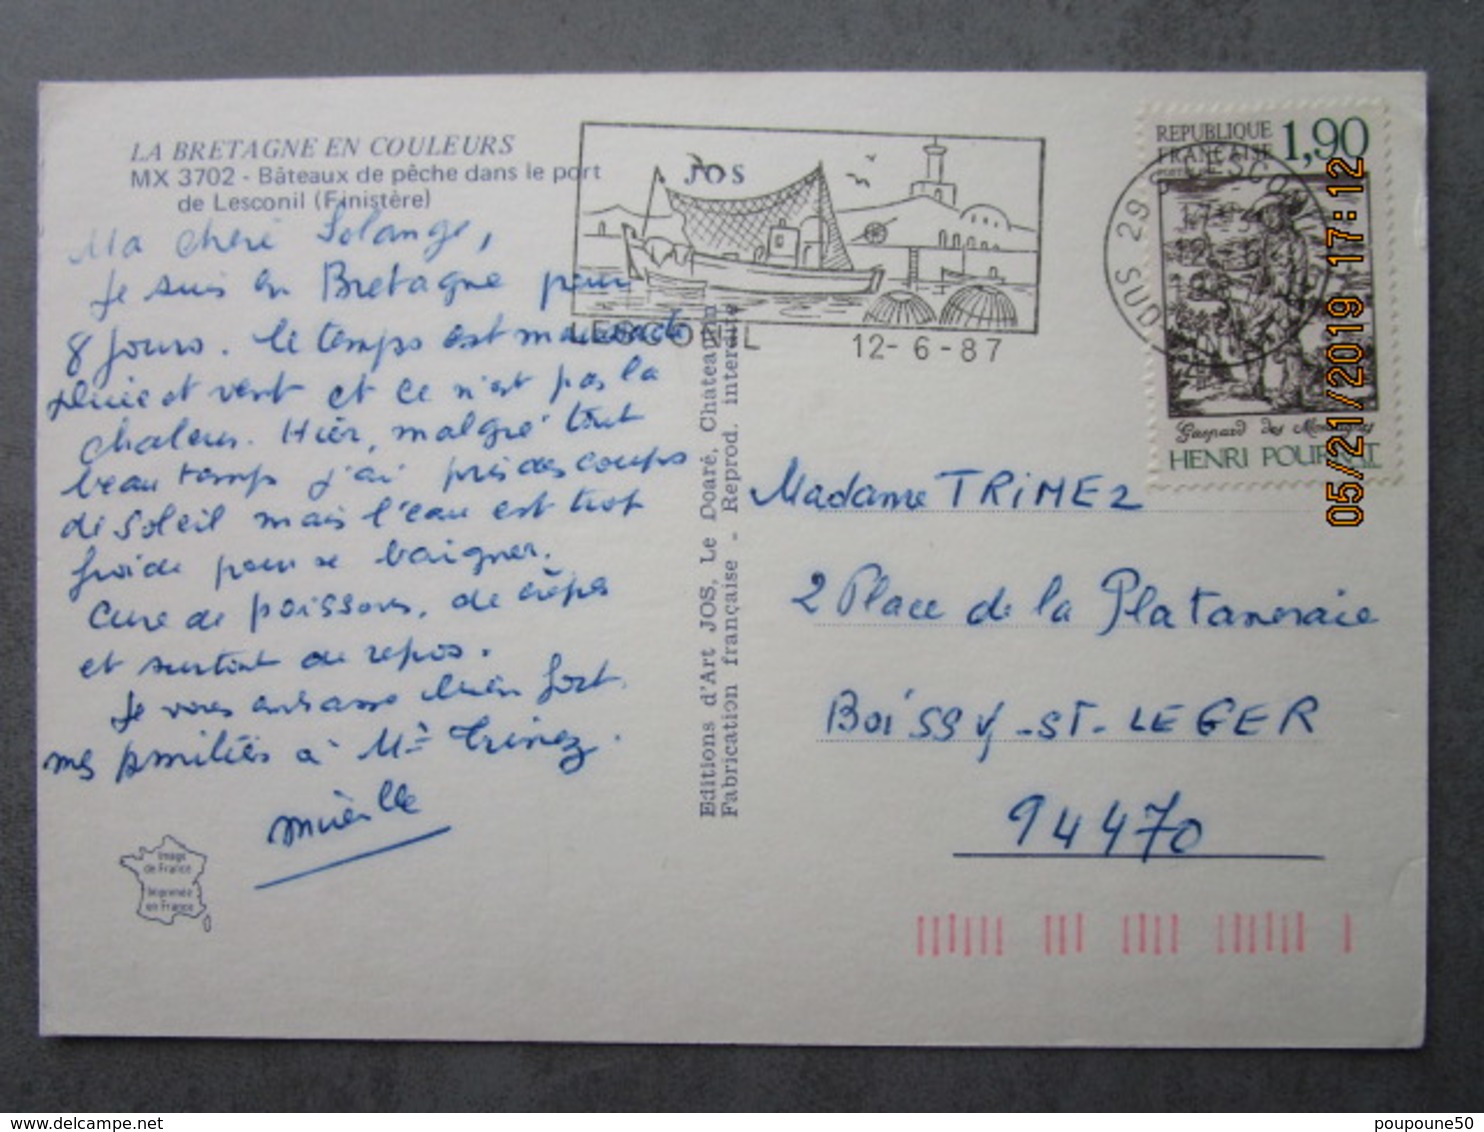 LA BRETAGNE EN COULEURS
MX 3702 - Bâteaux de pêche dans le port
de Lesconil (Finistère)
Ma chère Solange,
Je suis en Bretagne pour
8 jours. Le temps est maussade
pluie et vent et ce n'est pas la
chaleur. Hier, malgré tout
beau temps j'ai pris des coups
de soleil mais l'eau est trop
froide pour se baigner.
Cure de poissons, de crêpes
et surtout de repos.
Je vous embrasse bien fort.
mes amitiés à Mr Trimez.
Mireille
Image
de France
Imprimée
en France
Editions d'Art JOS, Le Doaré, Châteaulin
Fabrication française - Reprod. interdite
JOS
LESCONIL
12-6-87
REPUBLIQUE
FRANÇAISE
1,90
Gaspard des Montagnes
HENRI POURRAT
05/21/2019 17:12
Madame TRIMEZ
2 Place de la Plataneraie
BOISSY-ST-LEGER
94470
poupoune50